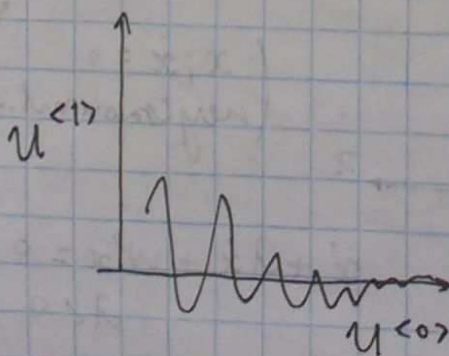 u<1>
u<0>